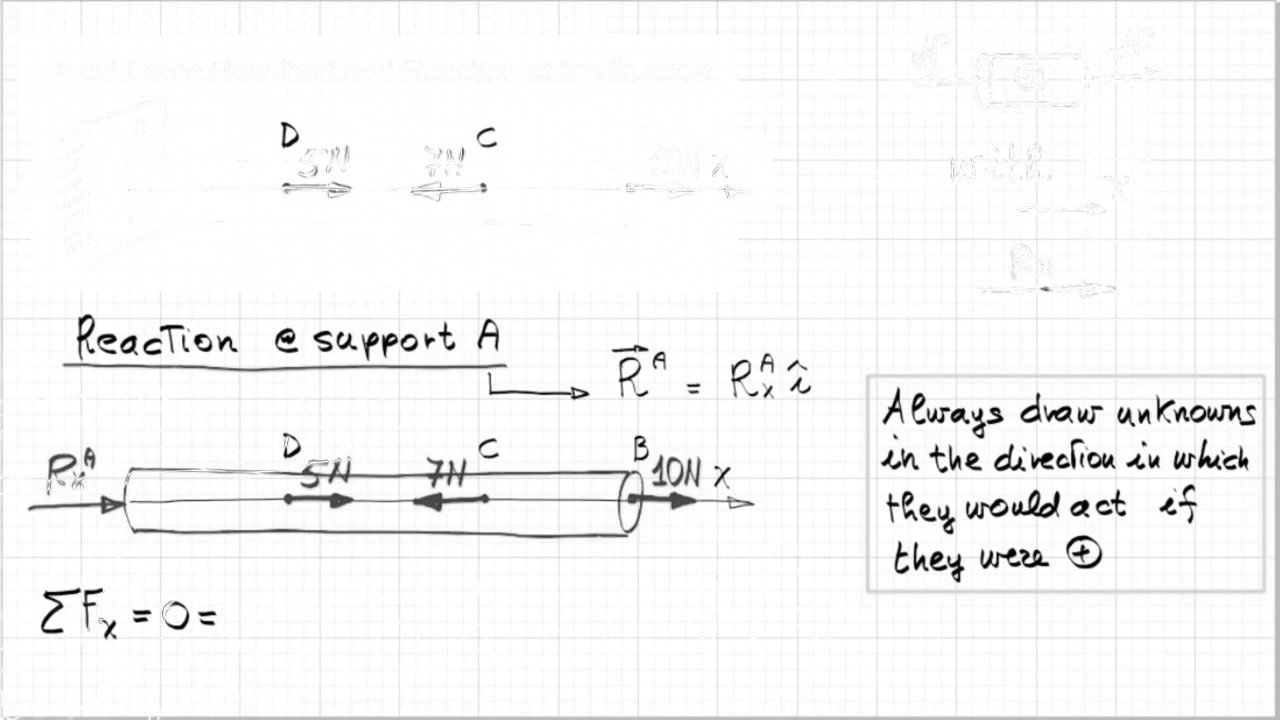 Axial Force Resultant and Reaction at the Support
D
5N
7N
C
10N x
with
x
Rx
Reaction @ support A
R^A = R_x^A î
R_x^A
D
5N
7N
C
B
10N x
Always draw unknowns
in the direction in which
they would act if
they were ⊕
ΣF_x = 0 =